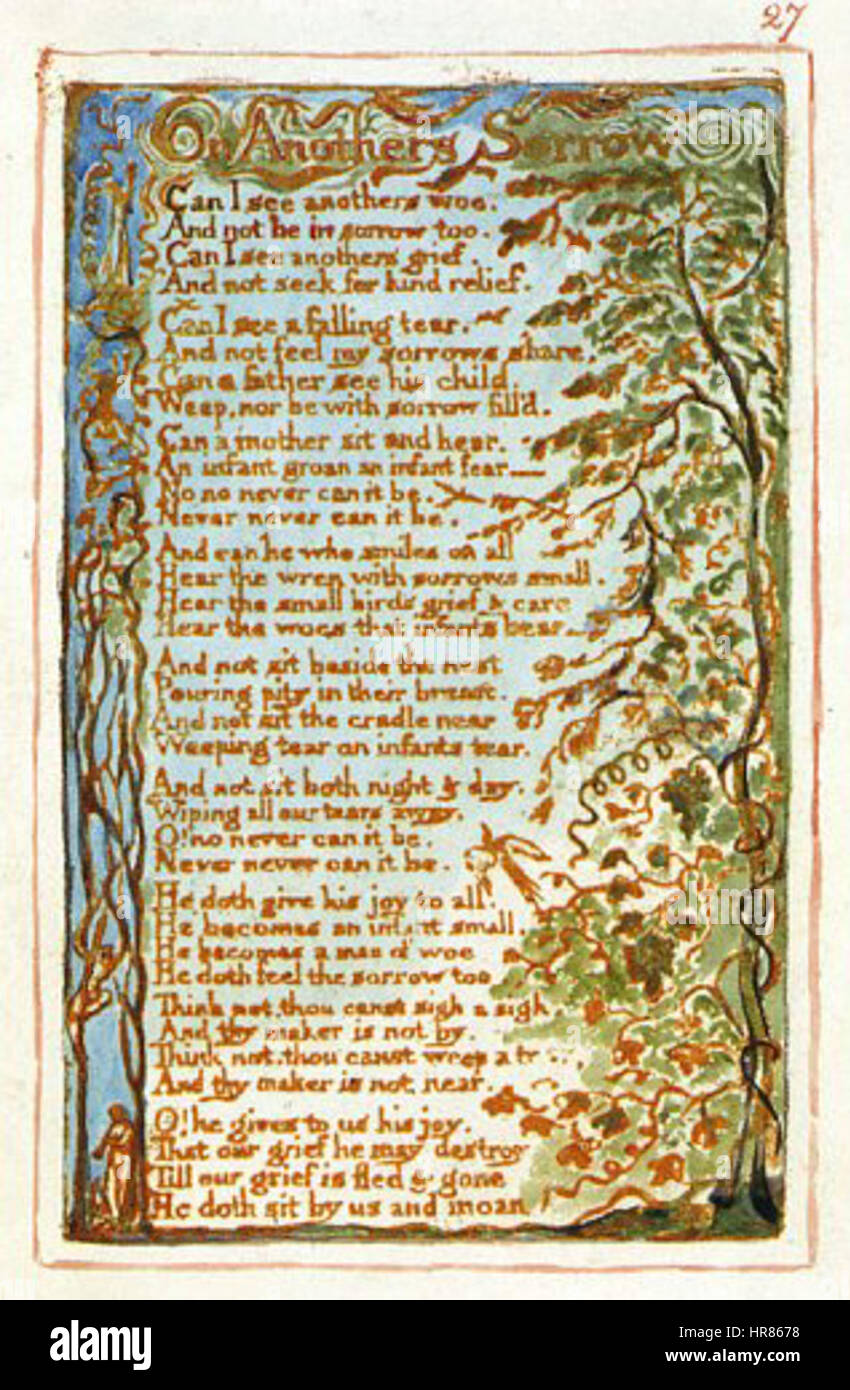 27
On Anothers Sorrow
Can I see anothers woe.
And not be in sorrow too.
Can I see anothers grief.
And not seek for kind relief.
Can I see a falling tear.
And not feel my sorrows share,
Can a father see his child,
Weep, nor be with sorrow fill'd.
Can a mother sit and hear.
An infant groan an infant fear
No no never can it be.
Never never can it be.
And can he who smiles on all
Hear the wren with sorrows small.
Hear the small birds grief & care
Hear the woes that infants bear
And not sit beside the nest
Pouring pity in their breast.
And not sit the cradle near
Weeping tear on infants tear.
And not sit both night & day.
Wiping all our tears away.
O! no never can it be.
Never never can it be.
He doth give his joy to all.
He becomes an infant small.
He becomes a man of woe
He doth feel the sorrow too
Think not. thou canst sigh a sigh
And thy maker is not by.
Think not. thou canst weep a
And thy maker is not near.
O! he gives to us his joy.
That our grief he may destroy
Till our grief is fled & gone
He doth sit by us and moan
alamy
Image ID: HR8678
www.alamy.com